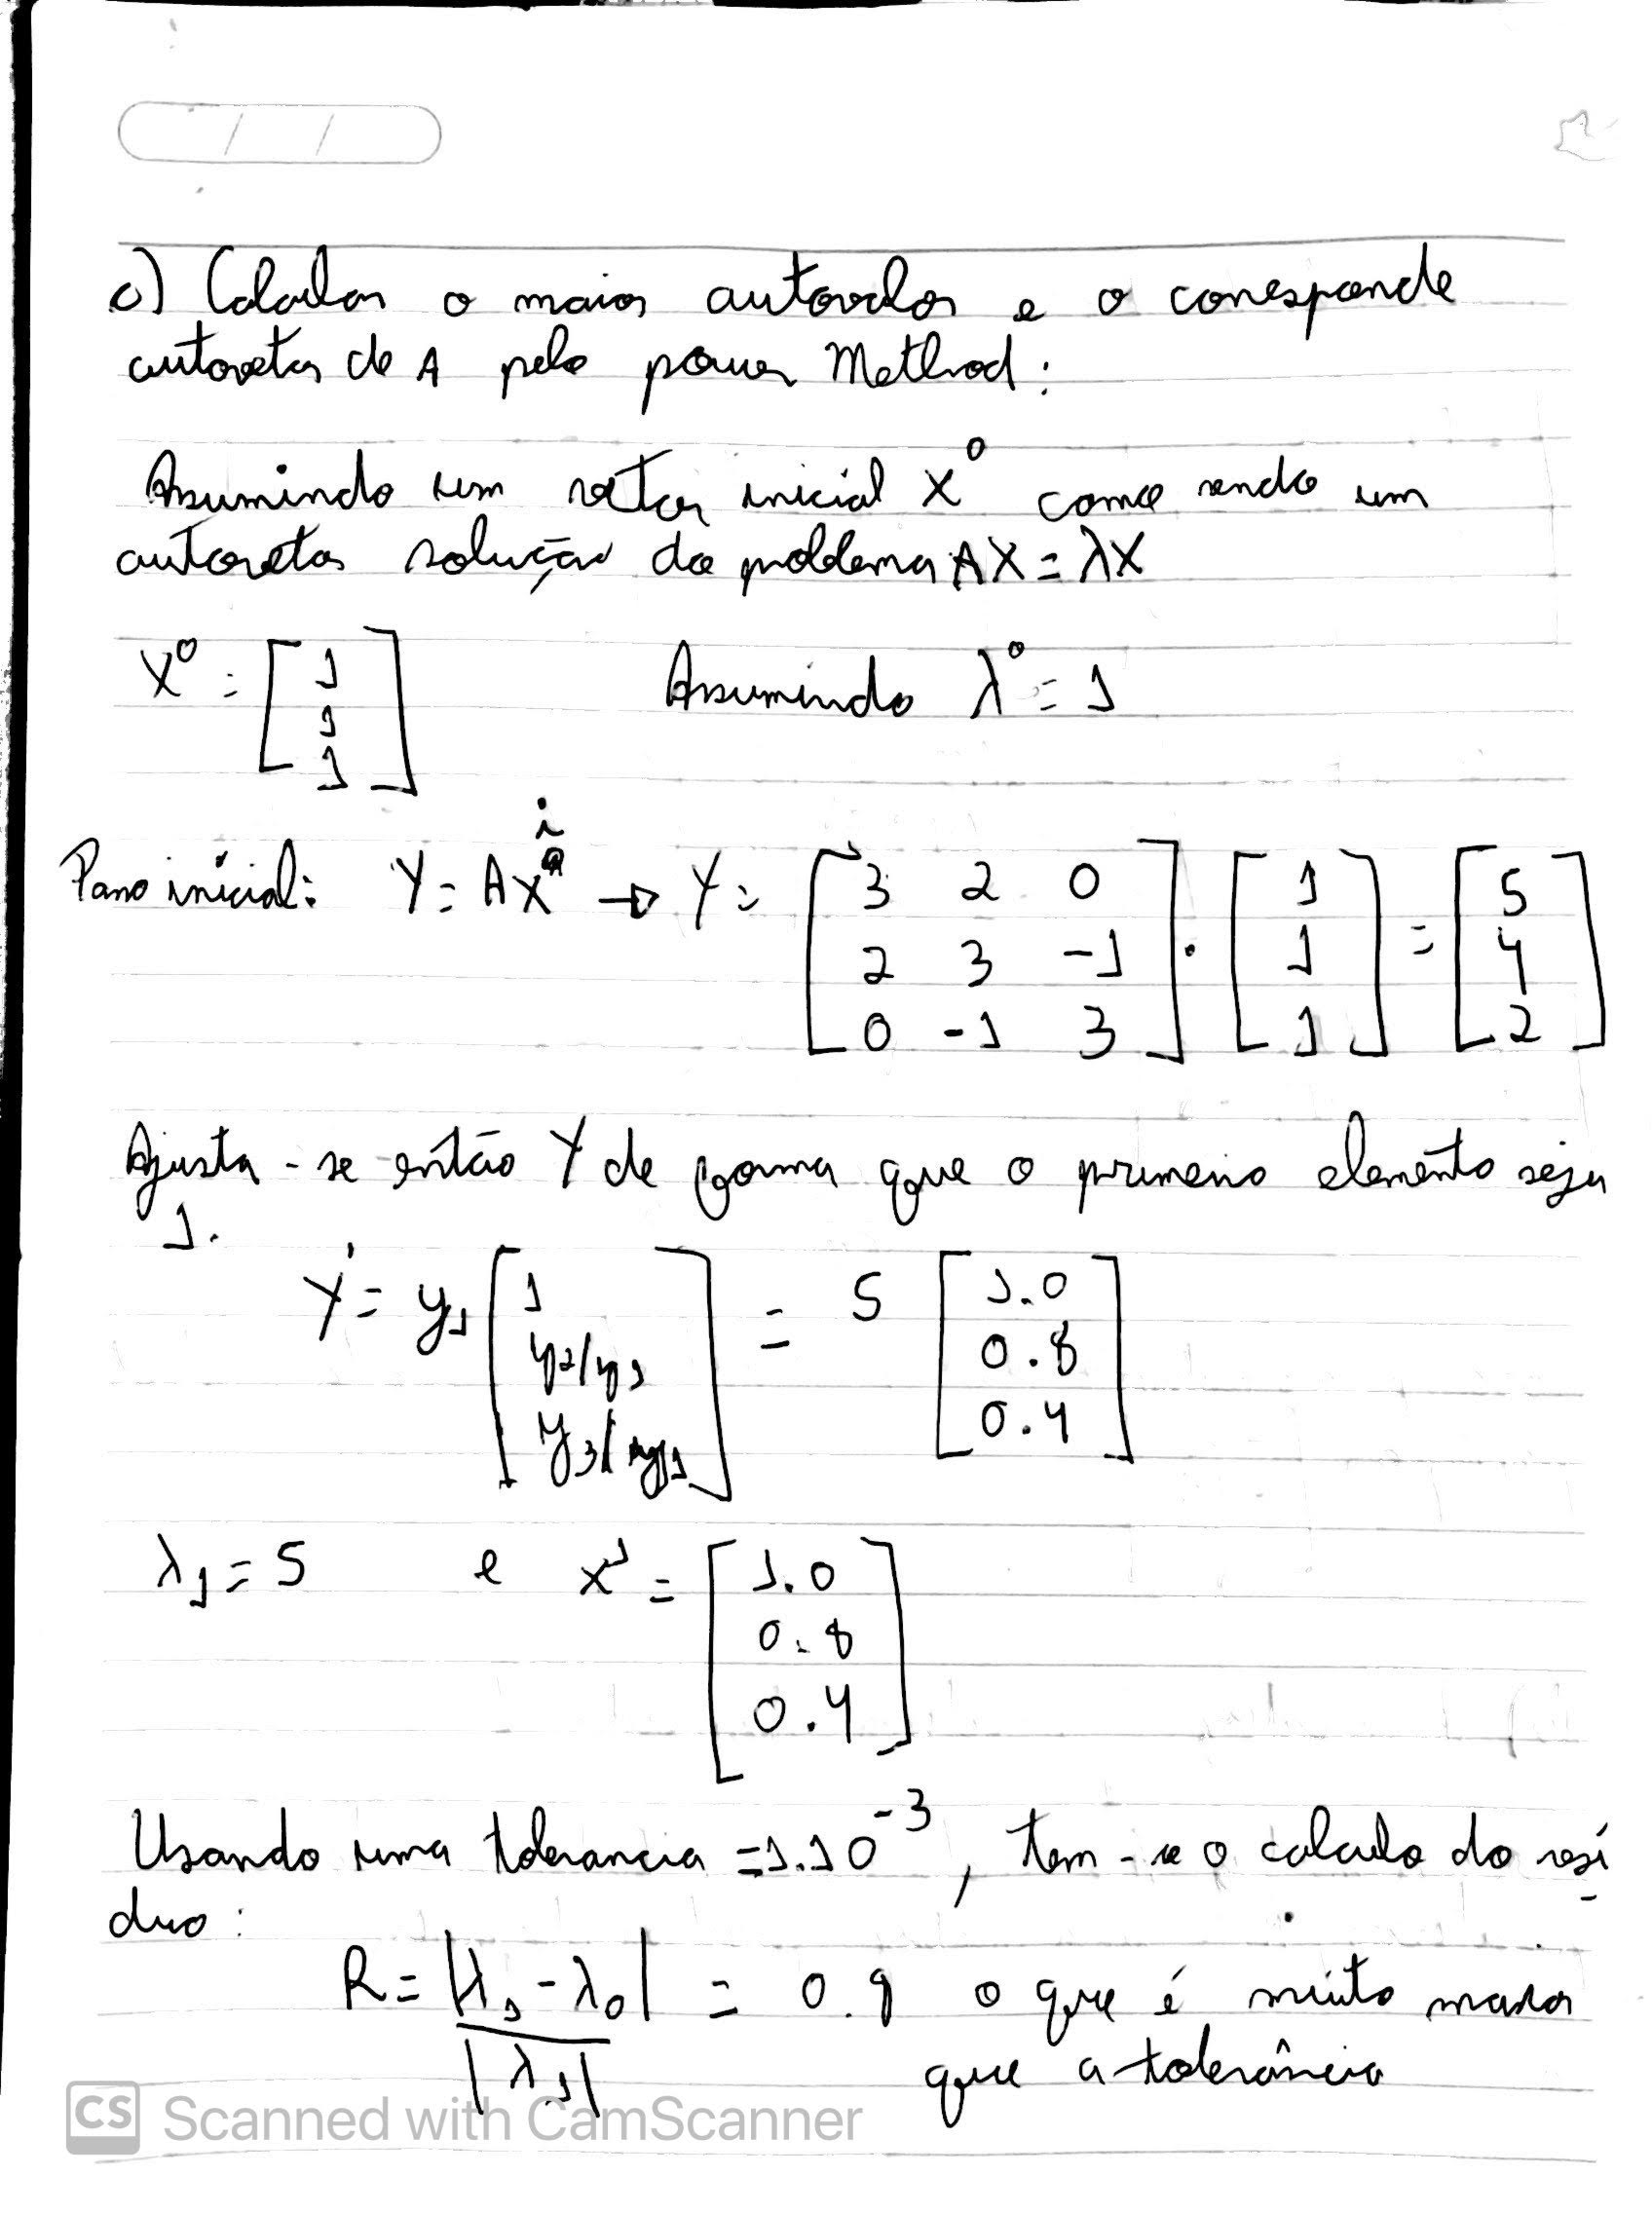 c) Calcular o maior autovalor e o corresponde
autovetor de A pelo power Method:
Assumindo um vetor inicial X⁰ como sendo um
autovetor solução do problema AX = λX
X⁰ = [1 1 1] Assumindo λ⁰ = 1
Passo inicial: Y = AXⁱ → Y = [3 2 0; 2 3 -1; 0 -1 3] · [1 1 1] = [5 4 2]
Ajusta-se então Y de forma que o primeiro elemento seja
1.
Y = y₁ [1 y₂/y₁ y₃/y₁] = 5 [1.0 0.8 0.4]
λ₁ = 5 e x¹ = [1.0 0.8 0.4]
Usando uma tolerancia = 1.10⁻³, tem-se o calculo do resí
duo:
R = |λ₁ - λ₀| / |λ₁| = 0.8 o que é muito maior
que a tolerância
CS Scanned with CamScanner